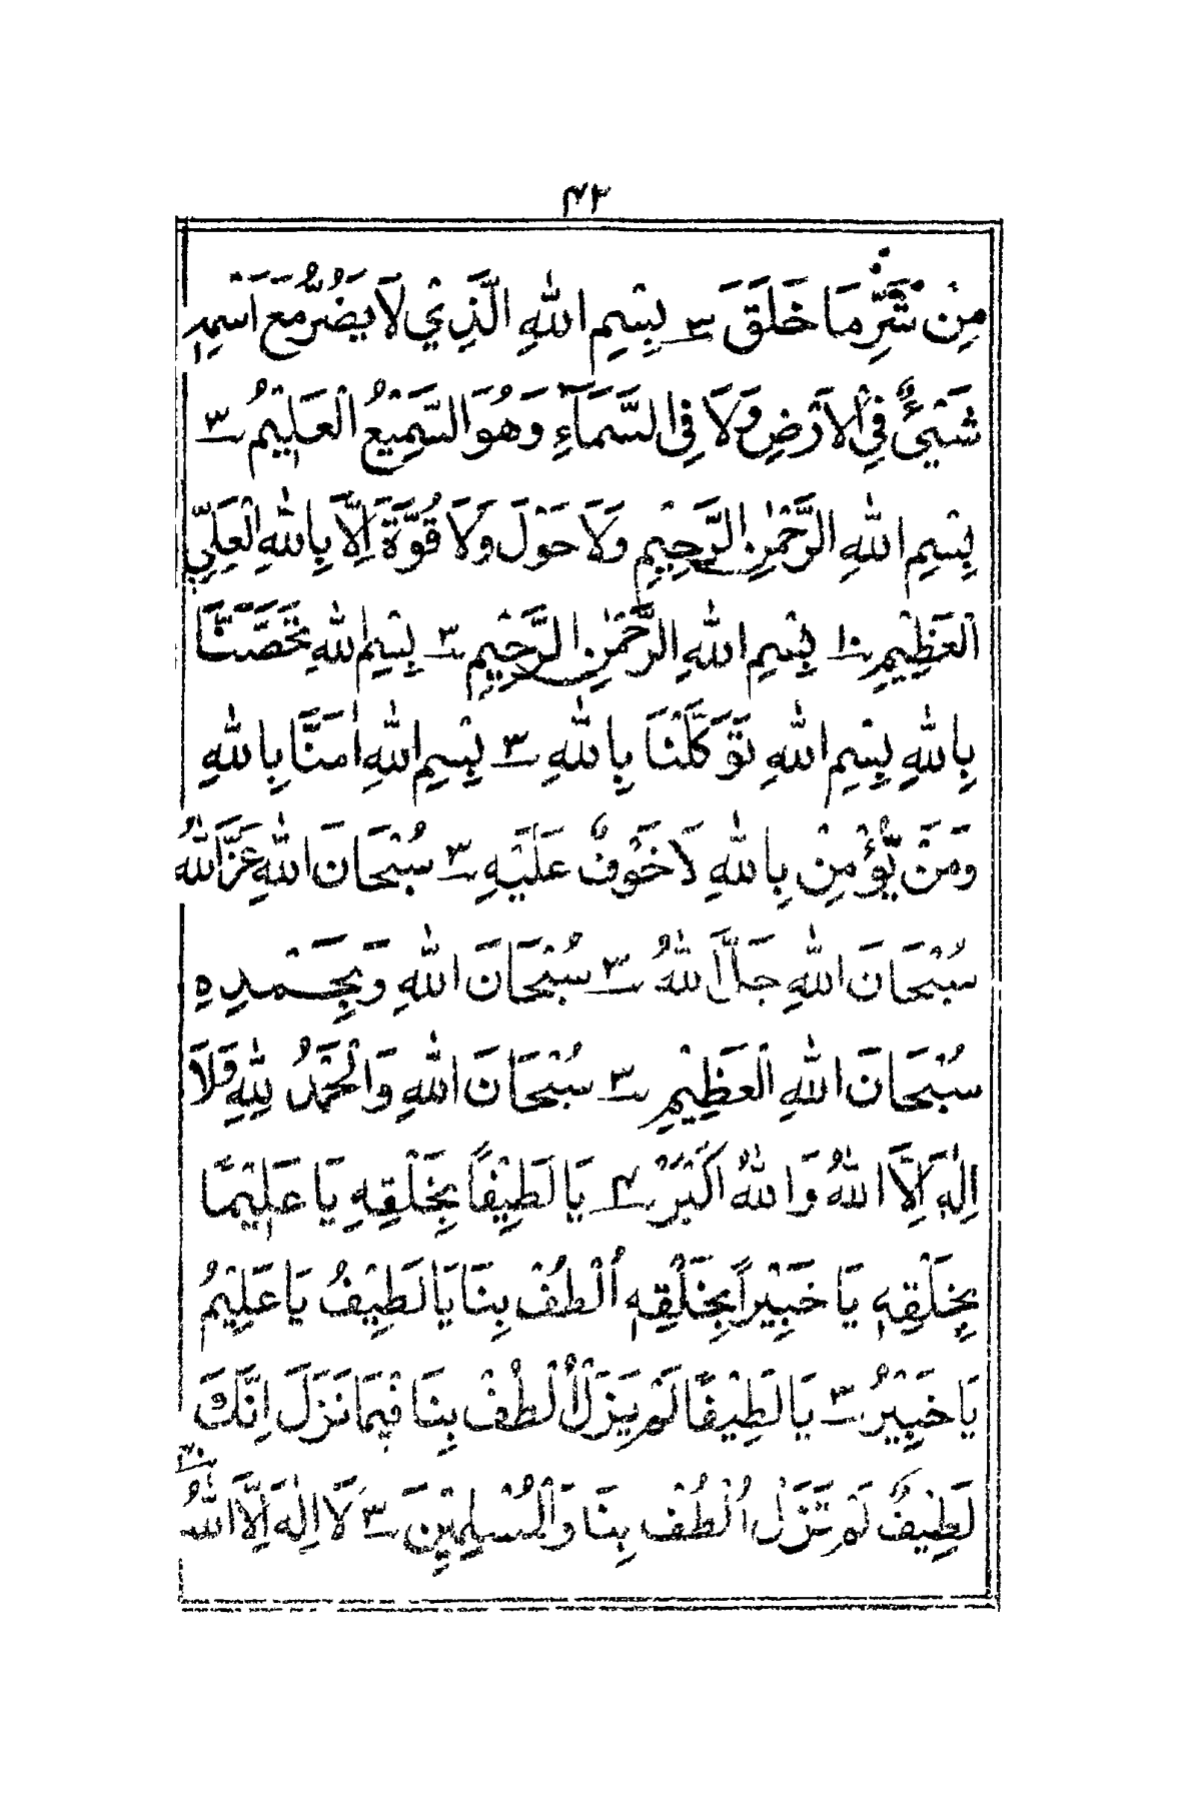 ۴۲
مِنْ شَرِّ مَا خَلَقَ ٣ بِسْمِ اللّٰهِ الَّذِيْ لَا يَضُرُّ مَعَ اسْمِهٖ
شَيْئٌ فِي الْاَرْضِ وَلَا فِي السَّمَآءِ وَهُوَ السَّمِيْعُ الْعَلِيْمُ ٣
بِسْمِ اللّٰهِ الرَّحْمٰنِ الرَّحِيْمِ وَلَا حَوْلَ وَلَا قُوَّةَ اِلَّا بِاللّٰهِ الْعَلِيِّ
الْعَظِيْمِ ١٠ بِسْمِ اللّٰهِ الرَّحْمٰنِ الرَّحِيْمِ ٣ بِسْمِ اللّٰهِ تَحَصَّنَّا
بِاللّٰهِ بِسْمِ اللّٰهِ تَوَكَّلْنَا بِاللّٰهِ ٣ بِسْمِ اللّٰهِ اٰمَنَّا بِاللّٰهِ
وَمَنْ يُّؤْمِنْ بِاللّٰهِ لَا خَوْفٌ عَلَيْهِ ٣ سُبْحَانَ اللّٰهِ عَزَّ اللّٰهُ
سُبْحَانَ اللّٰهِ جَلَّ اللّٰهُ ٣ سُبْحَانَ اللّٰهِ وَبِحَمْدِهِ
سُبْحَانَ اللّٰهِ الْعَظِيْمِ ٣ سُبْحَانَ اللّٰهِ وَالْحَمْدُ لِلّٰهِ وَلَا
اِلٰهَ اِلَّا اللّٰهُ وَاللّٰهُ اَكْبَرْ ۴ يَا لَطِيْفًا بِخَلْقِهِ يَا عَلِيْمًا
بِخَلْقِهٖ يَا خَبِيْرًا بِخَلْقِهٖ اُلْطُفْ بِنَا يَا لَطِيْفُ يَا عَلِيْمُ
يَا خَبِيْرُ ٣ يَا لَطِيْفًا لَمْ يَزَلْ اُلْطُفْ بِنَا فِيْمَا نَزَلَ اِنَّكَ
لَطِيْفٌ لَمْ تَزَلْ اُلْطُفْ بِنَا وَالْمُسْلِمِيْنَ ٣ لَا اِلٰهَ اِلَّا اللّٰهُ